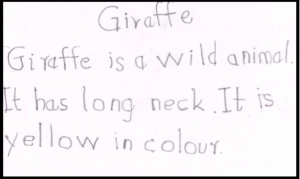 Giraffe
Giraffe is a wild animal.
It has long neck. It is
yellow in colour.